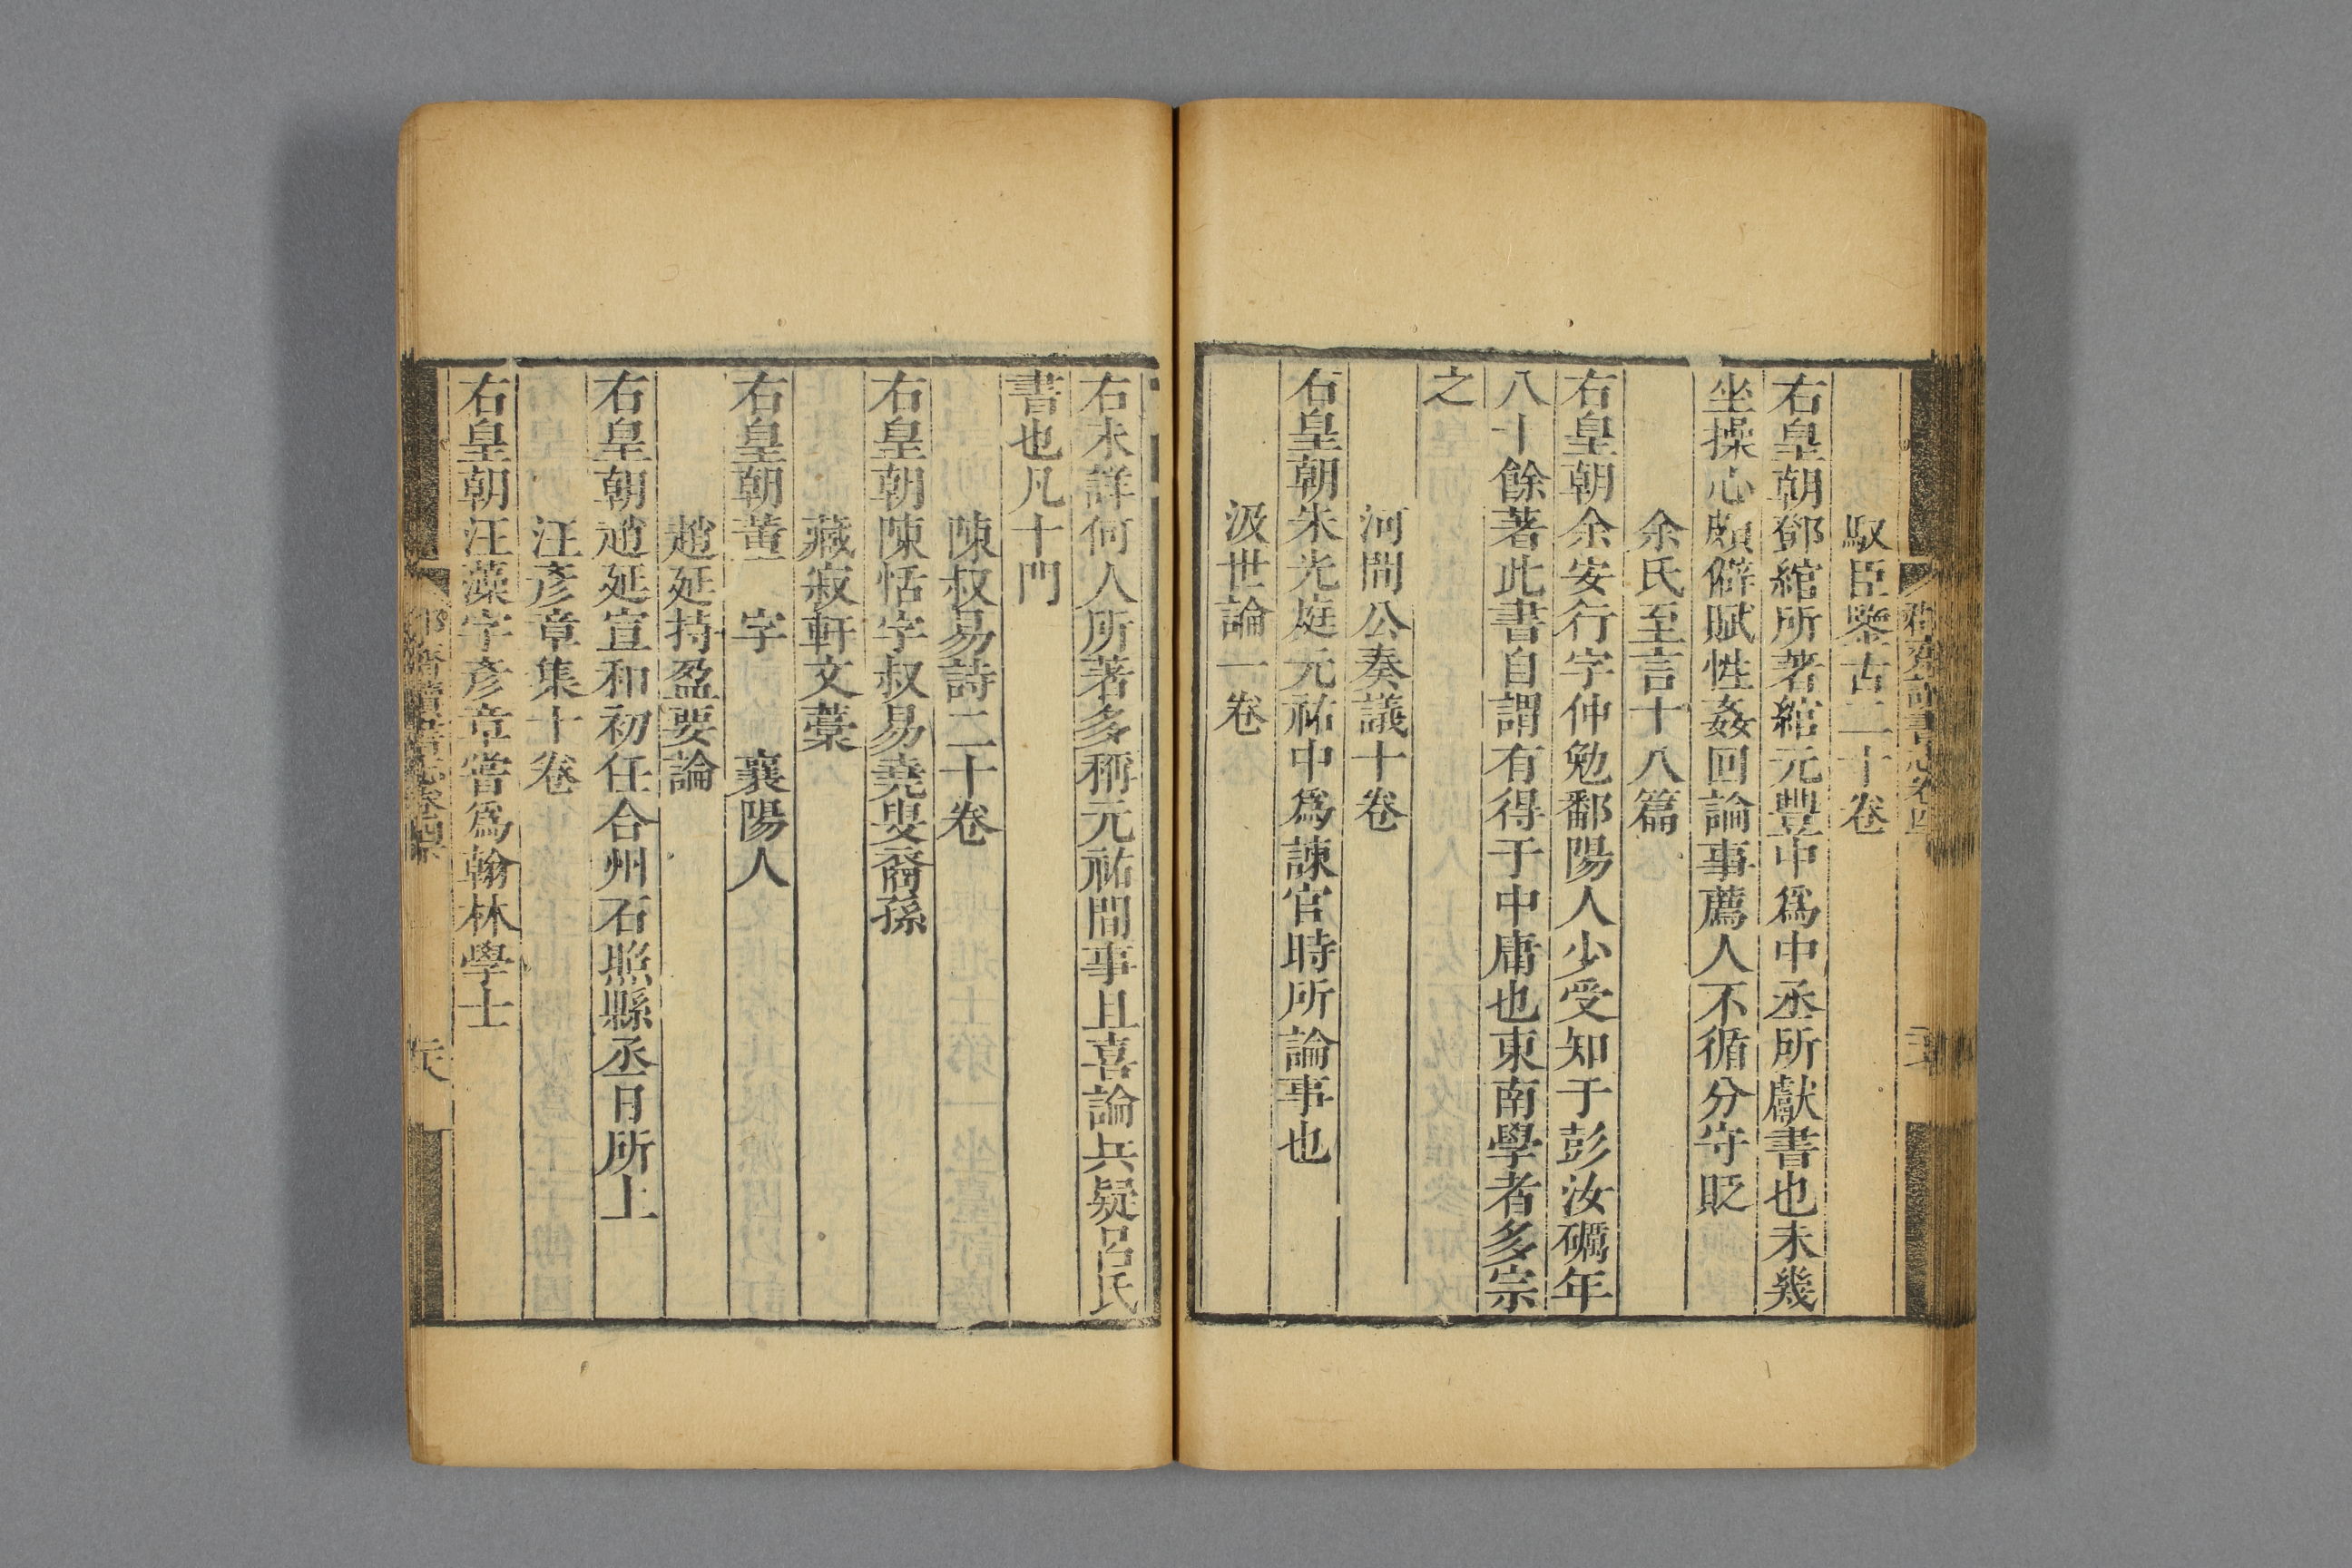 馭臣鑒古二十卷
右皇朝鄧綰所著綰元豐中爲中丞所獻書也未幾
坐操心頗僻賦性姦回論事薦人不循分守貶
余氏至言十八篇
右皇朝余安行字仲勉鄱陽人少受知于彭汝礪年
八十餘著此書自謂有得于中庸也東南學者多宗
之
河間公奏議十卷
右皇朝朱光庭元祐中爲諫官時所論事也
汲世論一卷
右未詳何人所著多稱元祐間事且喜論兵疑呂氏
書也凡十門
陳叔易詩二十卷
右皇朝陳恬字叔易堯叟裔孫
藏寂軒文藁
右皇朝董 字 襄陽人
趙延持盈要論
右皇朝趙延宣和初任合州石照縣丞日所上
汪彥章集十卷
右皇朝汪藻字彥章嘗爲翰林學士